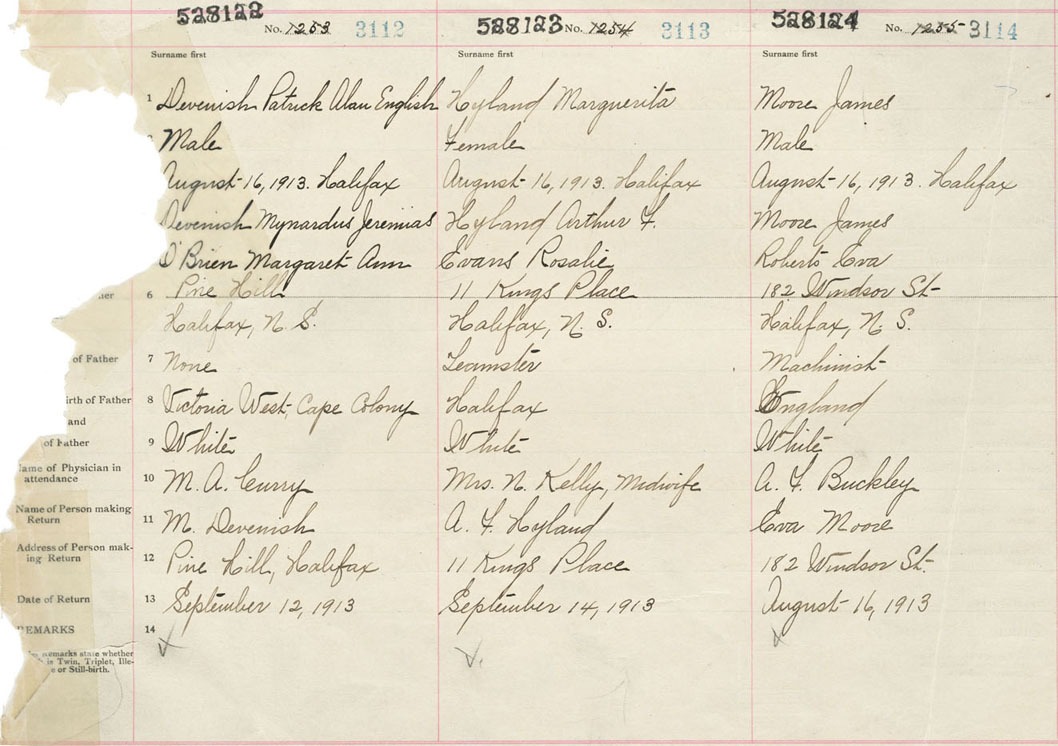 528122 528123 528124
No. 1253 3112 No. 1254 3113 No. 1255 3114
Surname first Surname first Surname first
1 Devenish Patrick Alan English Hyland Marguerita Moore James
Male Female Male
August 16, 1913. Halifax August 16, 1913. Halifax August 16, 1913. Halifax
Devenish Mynardus Jeremias Hyland Arthur F. Moore James
O'Brien Margaret Ann Evans Rosalie Roberts Eva
her 6 Pine Hill 11 Kings Place 182 Windsor St
Halifax, N. S. Halifax, N. S. Halifax, N. S.
of Father 7 None Teamster Machinist
irth of Father 8 Victoria West, Cape Colony Halifax England
and
of Father 9 White White White
ame of Physician in
attendance 10 M. A. Curry Mrs. N. Kelly, Midwife A. F. Buckley
Name of Person making
Return 11 M. Devenish A. F. Hyland Eva Moore
Address of Person mak-
ing Return 12 Pine Hill, Halifax 11 Kings Place 182 Windsor St.
Date of Return 13 September 12, 1913 September 14, 1913 August 16, 1913
REMARKS 14
remarks state whether
is Twin, Triplet, Ille-
e or Still-birth.